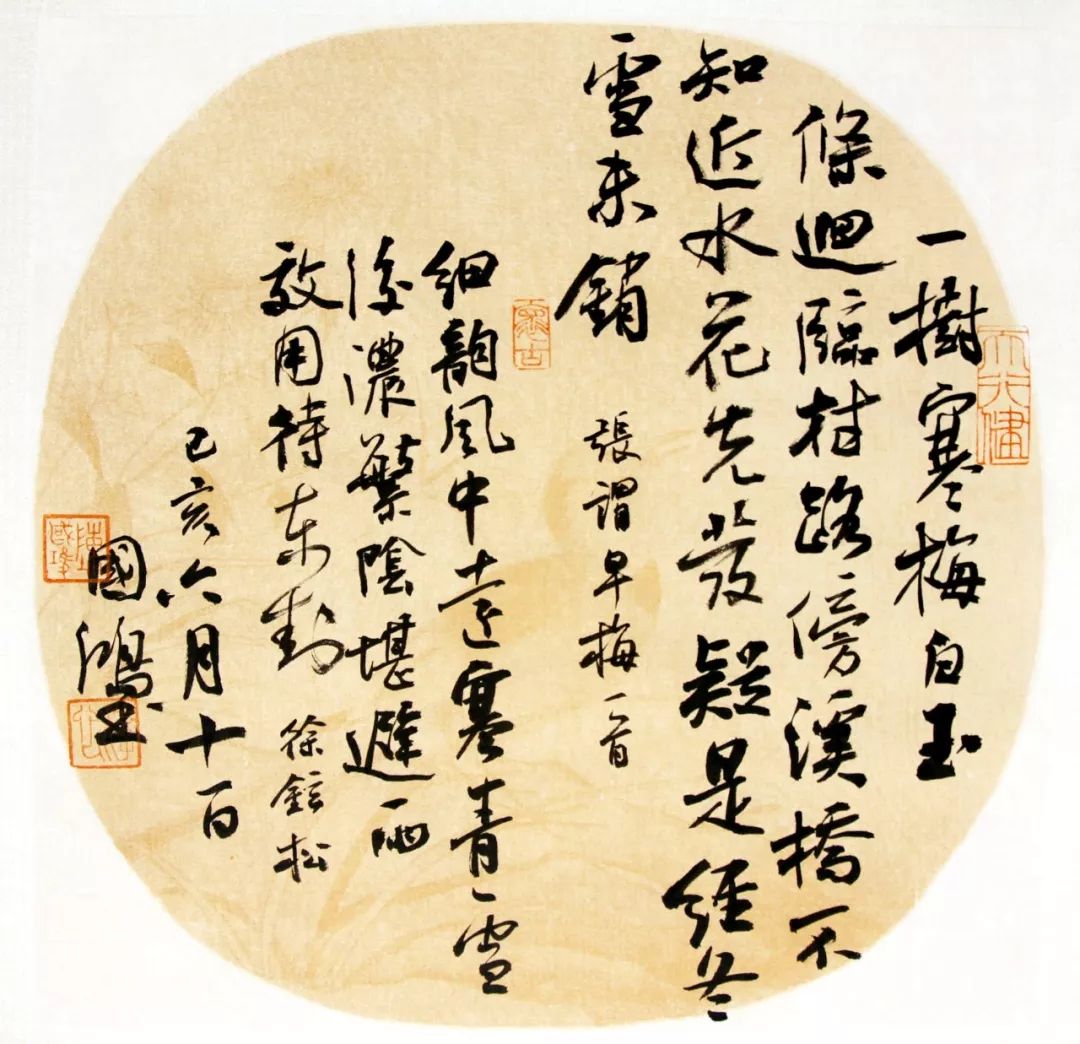 一樹寒梅白玉
條迴臨村路傍溪橋不
知近水花先發疑是經冬
雪未銷 張謂早梅一首
細韻風中遠寒青雪
後濃繁陰堪避雨
效用待東封 徐鉉松
己亥六月十一日
國鴻書
天行健